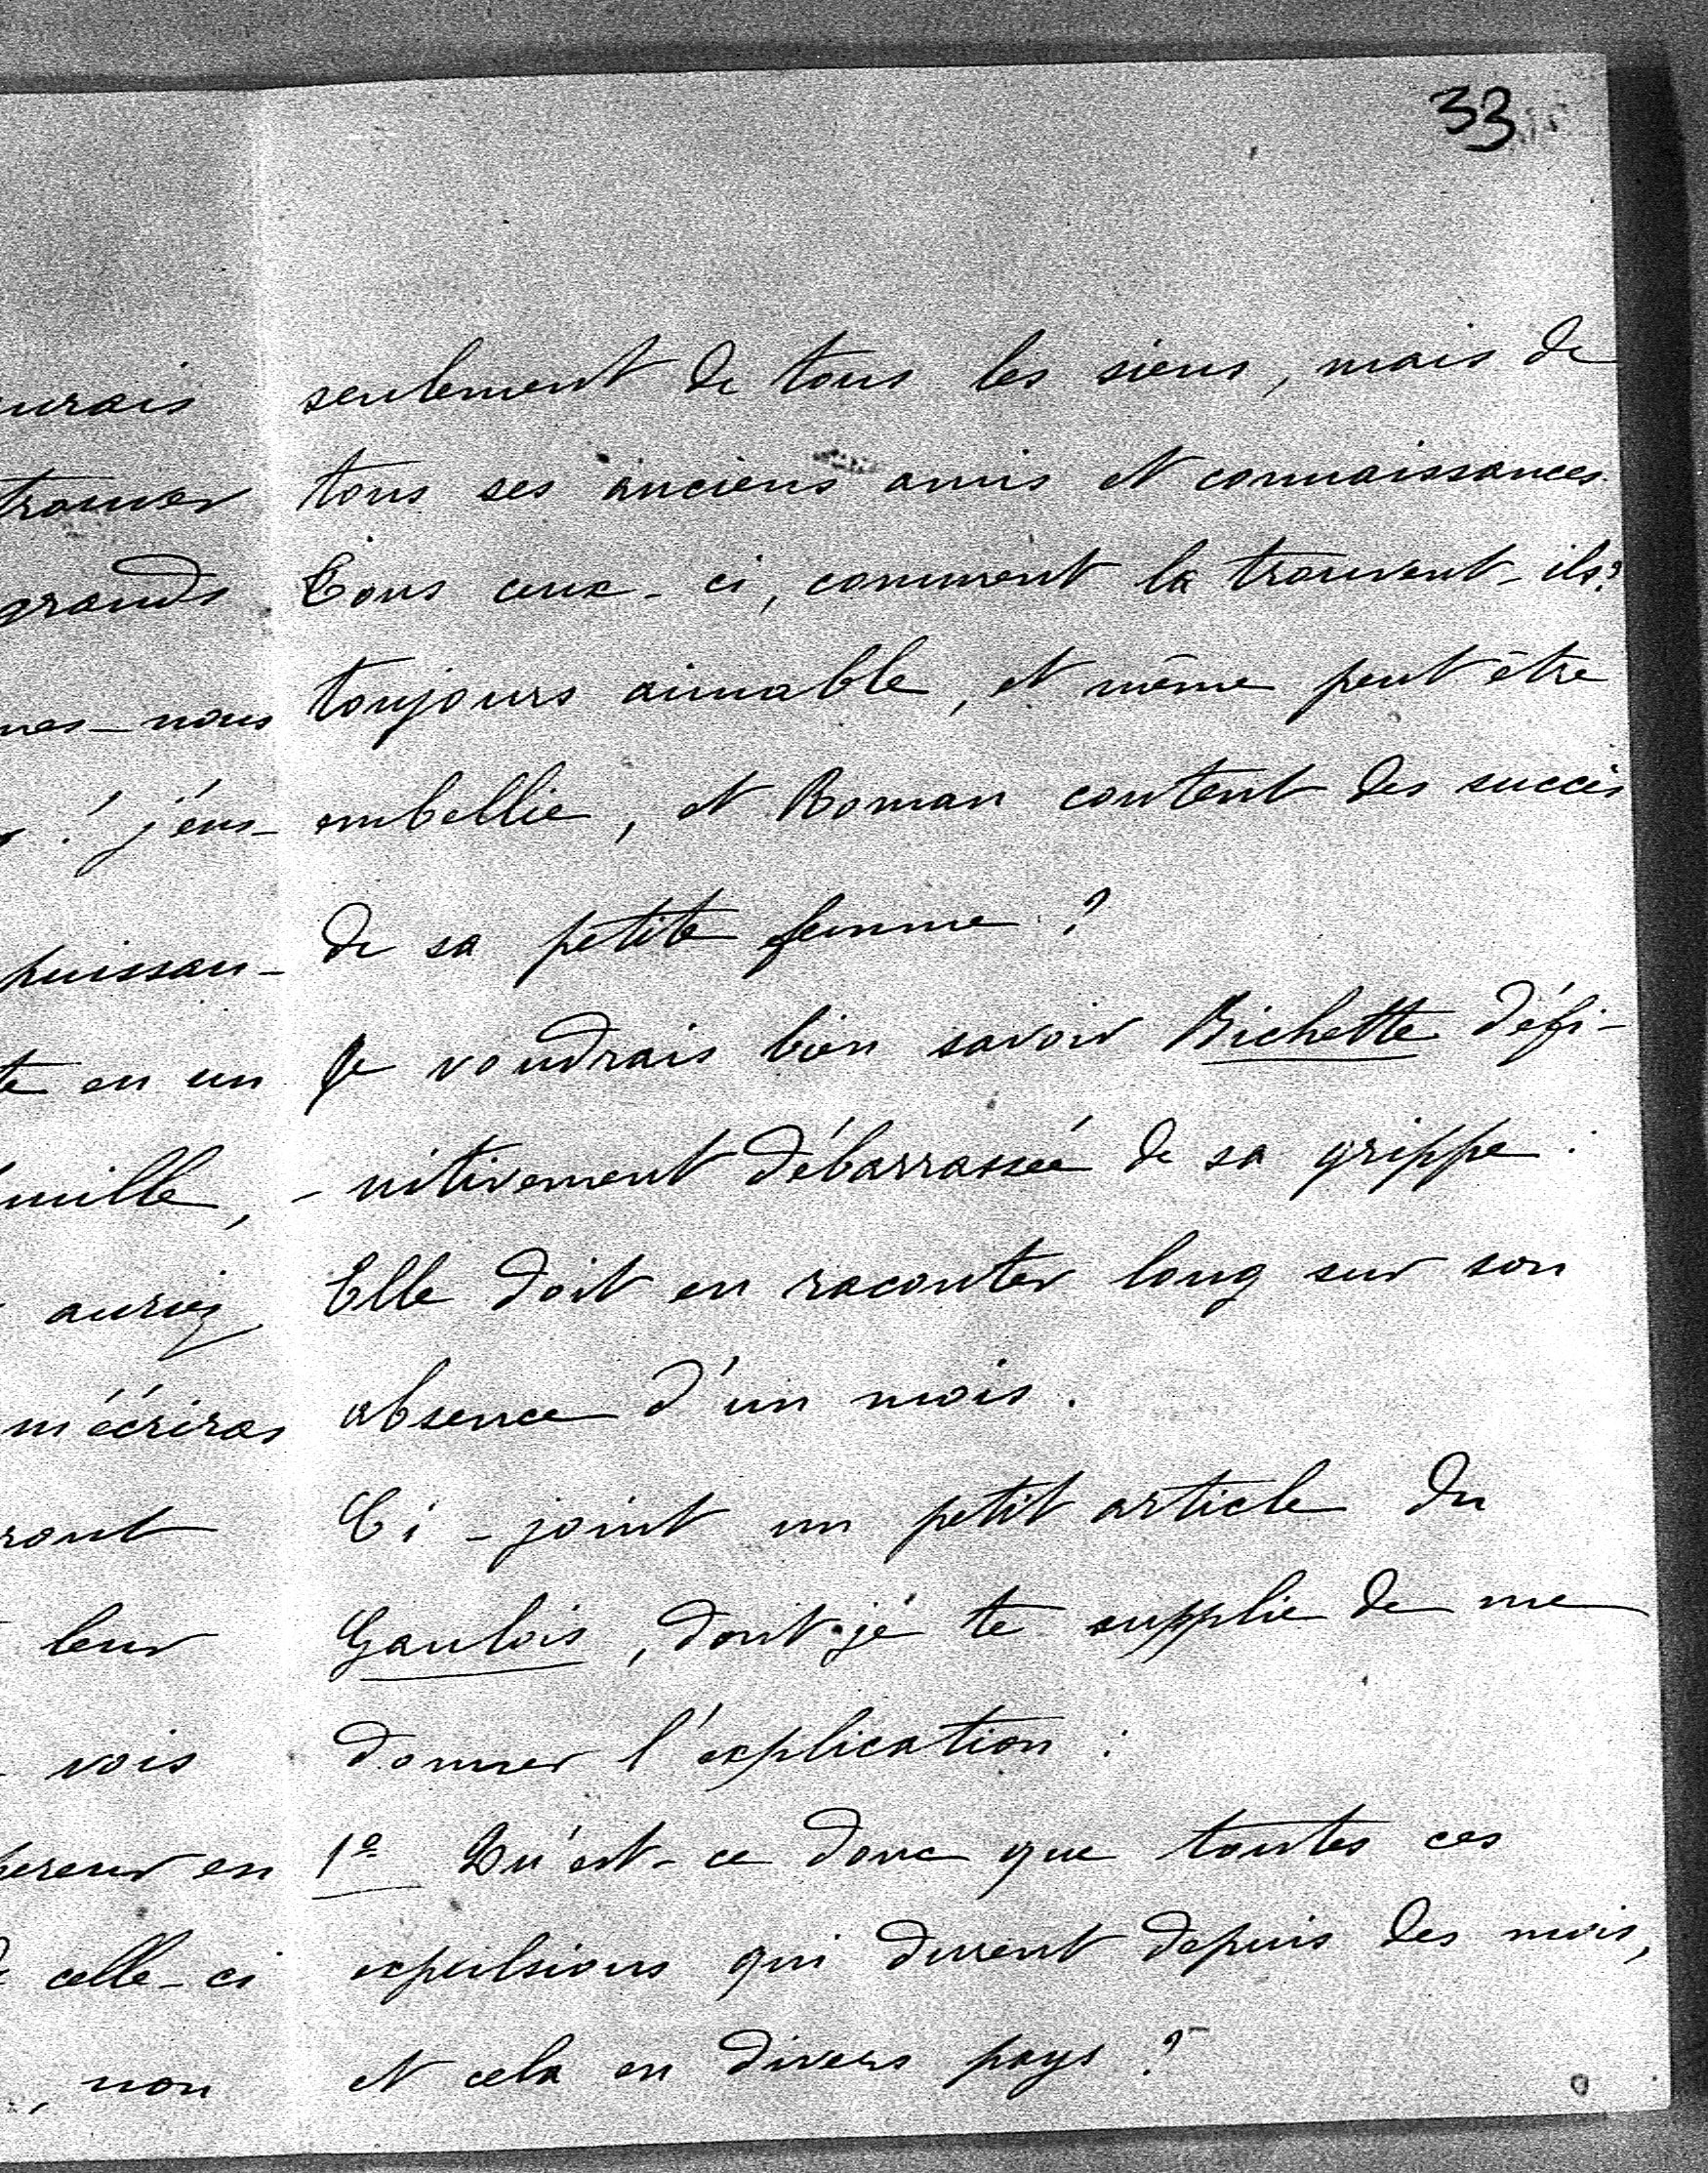 33
urais
trouver
grands
mes-nous
! j'eus-
puissan-
te en un
mille,
auriez
m'écriras
ront
leur
vois
pereur en
celle-ci
, non
seulement de tous les siens, mais de
tous ses anciens amis et connaissances.
Tous ceux-ci, comment la trouvent-ils?
toujours aimable, et même peut être
embellie, et Roman content des succès
de sa petite femme?
Je voudrais bien savoir Bichette défi-
-nitivement débarrassée de sa grippe.
Elle doit en raconter long sur son
absence d'un mois.
Ci-joint un petit article du
Gaulois, dont je te supplie de me
donner l'explication:
1º Qu'est-ce donc que toutes ces
expulsions qui durent depuis des mois,
et cela en divers pays?